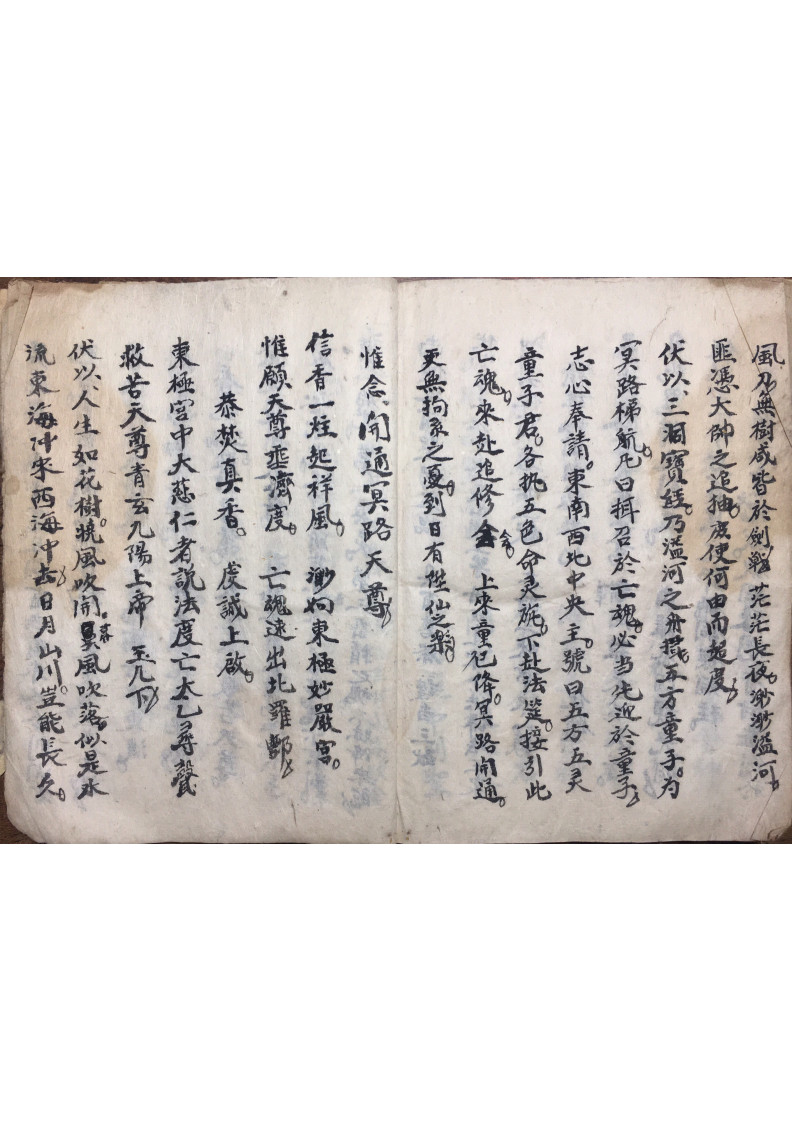 風刀無樹咸皆於劍戟茫茫長夜渺渺溢河
匪憑大帥之追抽度使何由而超度
伏以三洞寶經乃溢河之舟楫五方童子為
冥路梯航凡曰揖召於亡魂必当先迎於童子
志心奉請東南西北中央主號曰五方五灵
童子君各执五色命灵旛下赴法筵接引此
亡魂來赴追修会 上來童已降冥路開通
更無拘系之憂到日有陞仙之樂
惟念開通冥路天尊
信香一炷起祥風 渺向東極妙嚴宮
惟願天尊垂濟度 亡魂速出北羅酆
恭焚真香 虔誠上啟
東極宮中大慈仁者說法度亡太乙尋聲
救苦天尊青玄九陽上帝 玉几下
伏以人生如花樹曉風吹開暮風吹落似是水
流東海冲來西海冲去日月山川豈能長久